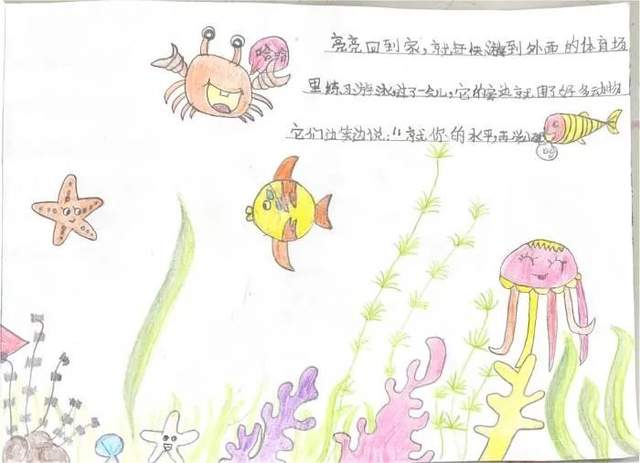 哈哈
亮亮回到家，就赶快游到外面的体育场
里练习游泳，过了一会儿，它的旁边就围了好多动物
它们边笑边说：“就你的水平再